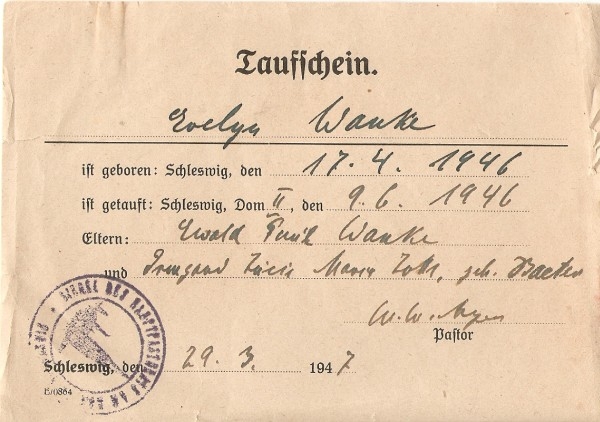 Taufschein.
Evelyn Wanke
ist geboren: Schleswig, den 17. 4. 1946
ist getauft: Schleswig, Dom II, den 9. 6. 1946
Eltern: Ewald Paul Wanke
und Irmgard Maria geb.
Pastor
SIEGEL DES HAUPTPASTORATS AM
Schleswig, den 29. 3. 1947
15/0864